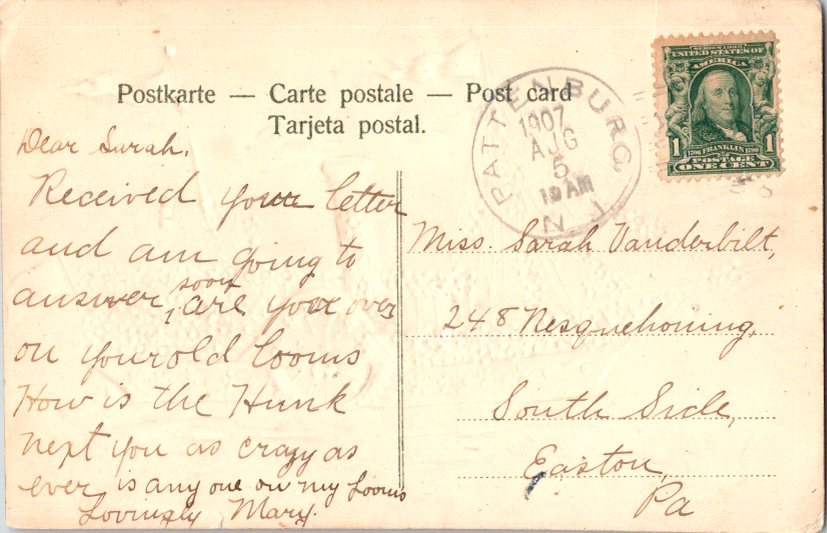 Postkarte — Carte postale — Post card
Tarjeta postal.
PATTENBURG
1907
AUG
5
10 AM
N J
SERIES 1902
UNITED STATES OF
AMERICA
1 1
1706 FRANKLIN 1790
POSTAGE
ONE CENT
Dear Sarah.
Received your letter
and am going to
soon
answer, are you over
on your old looms
How is the Hunk
next you as crazy as
ever is any one on my looms
Lovingly Mary.
Miss. Sarah Vanderbilt,
248 Nesquehoning,
South Side,
Easton,
Pa